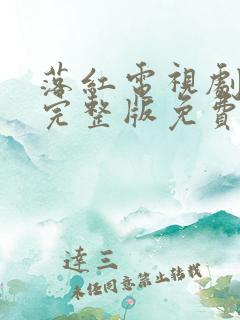 落红電視劇
完整版免費
達三
未任同意禁止轉載